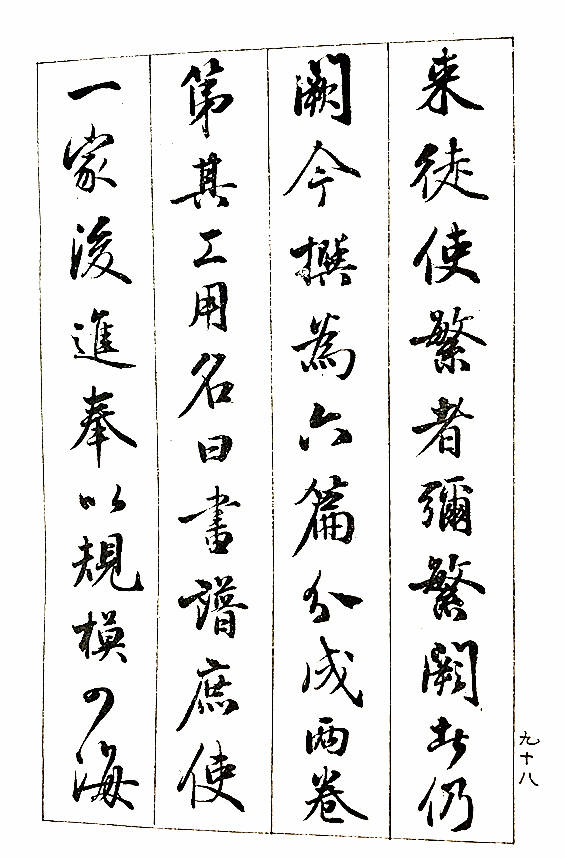 来徒使繁者彌繁闕者仍
闕今撰為六篇分成兩卷
第其工用名曰書譜庶使
一家後進奉以規模四海
九十八